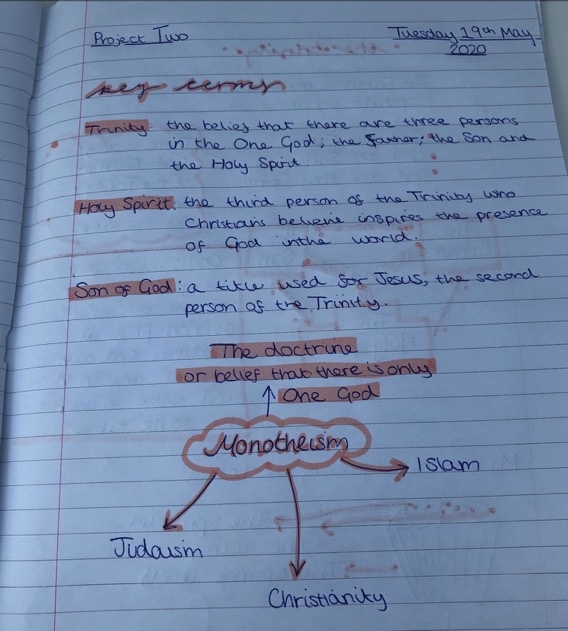 Project Two
Tuesday 19th May
2020
key terms
Trinity: the belief that there are three persons
in the One God; the Father; the Son and
the Holy Spirit
Holy Spirit: the third person of the Trinity who
Christians believe inspires the presence
of God in the world.
Son of God: a title used for Jesus, the second
person of the Trinity.
The doctrine
or belief that there is only
One God
Monotheism
Islam
Judaism
Christianity